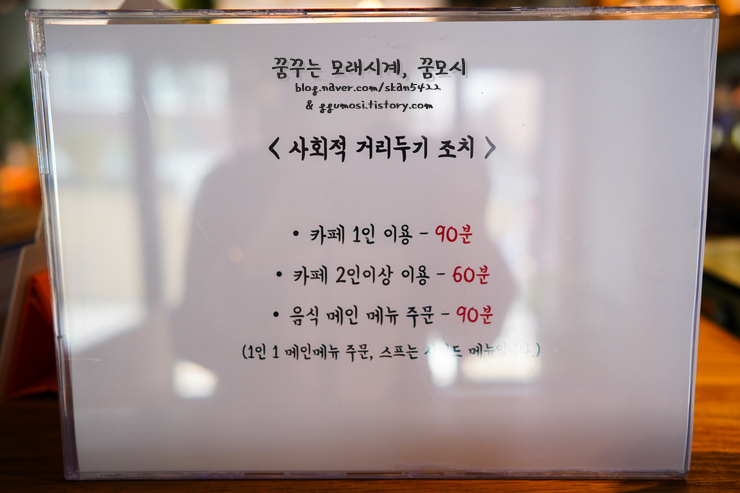 꿈꾸는 모래시계, 꿈모시
blog.naver.com/skan5422
& ggumosi.tistory.com
< 사회적 거리두기 조치 >
• 카페 1인 이용 - 90분
• 카페 2인이상 이용 - 60분
• 음식 메인 메뉴 주문 - 90분
(1인 1 메인메뉴 주문, 스프는 사이드 메뉴입니다.)